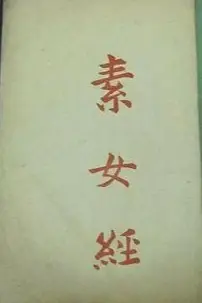 素女經